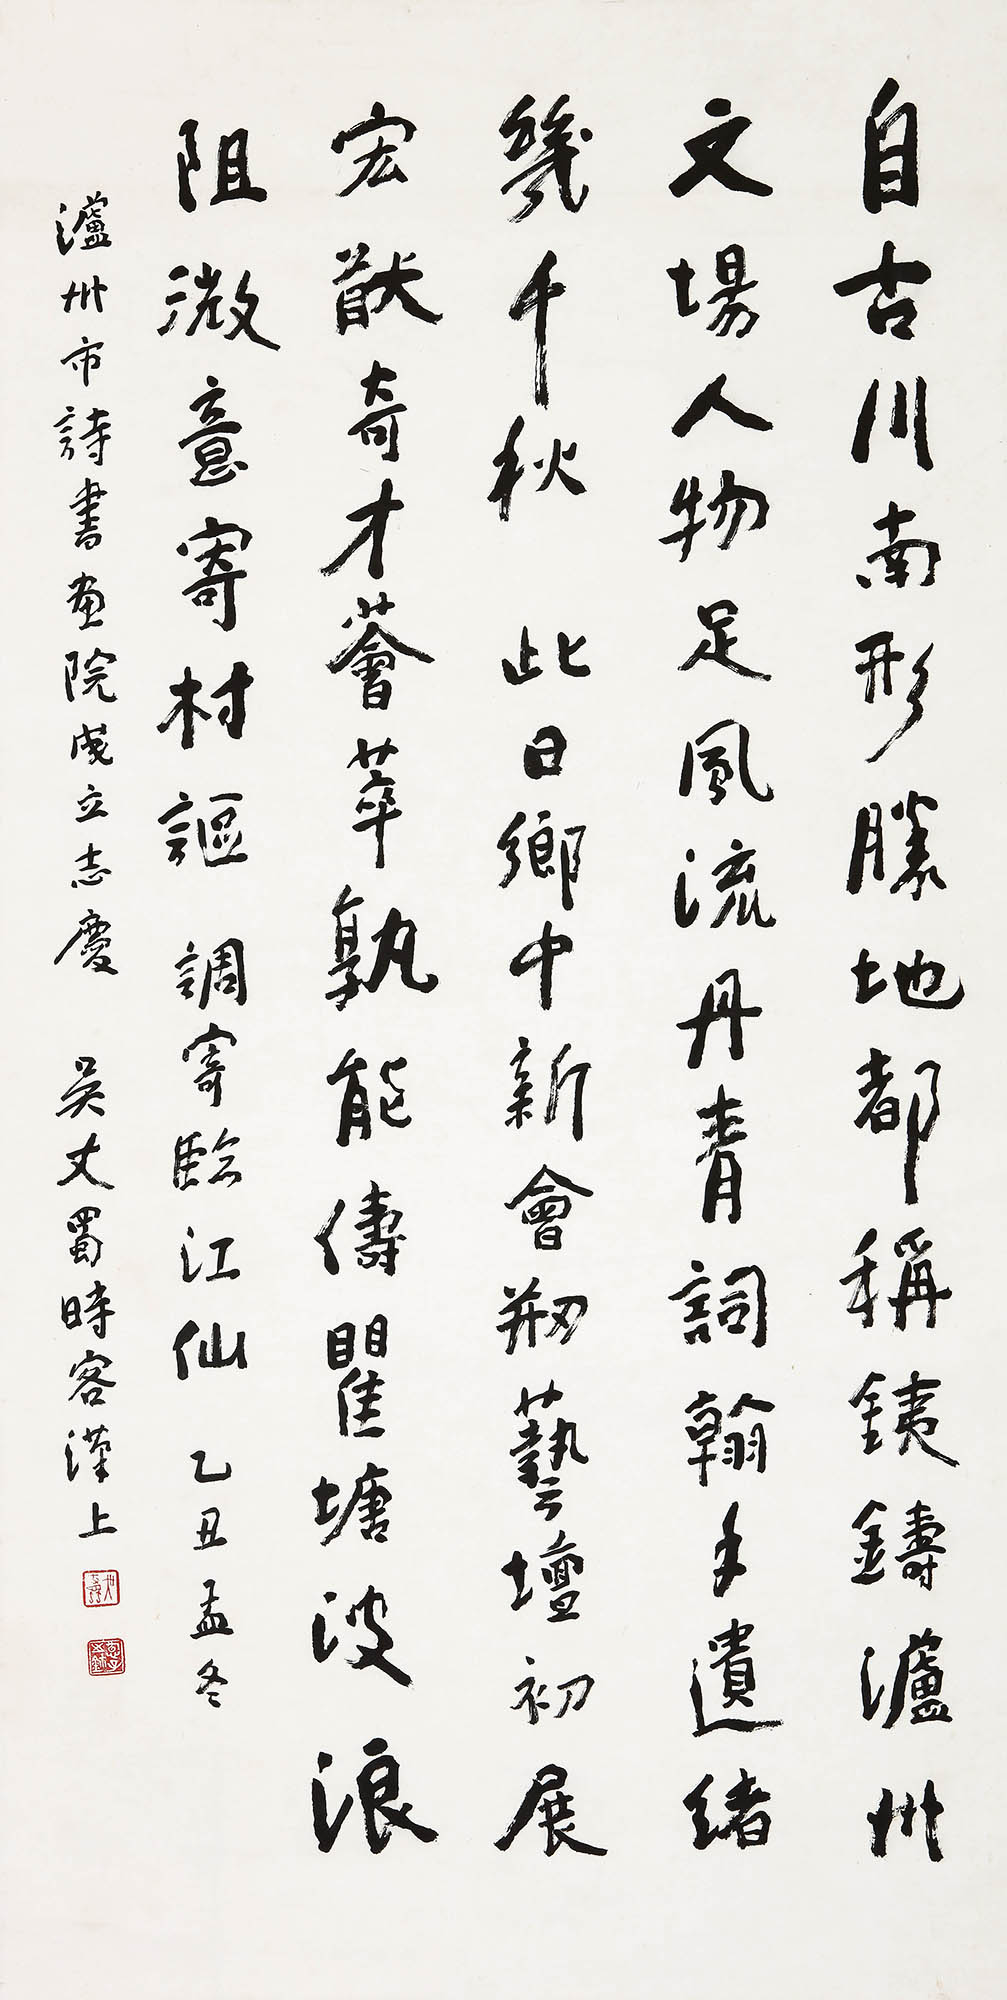 自古川南形勝地都稱銕鑄瀘州
文場人物足風流丹青詞翰手遺緒
幾千秋 此日鄉中新會刱藝壇初展
宏猷奇才薈萃孰能儔瞿塘波浪
阻微意寄村謳 調寄臨江仙 乙丑孟冬
瀘州市詩書畫院成立志慶 吴丈蜀時客漢上